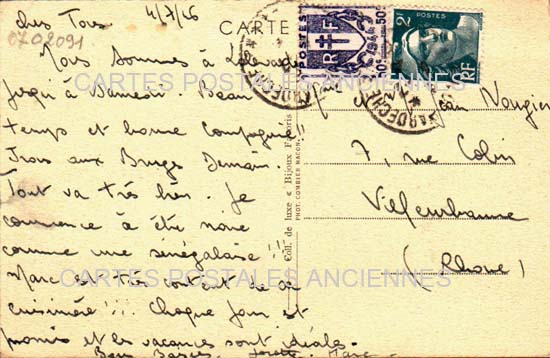 chers Tous 4/7/46
07 02091
Nous sommes à
jusqu'à Samedi Beau
temps et bonne Compagnie!!
Irons aux Bruges Demain.
Tout va très bien. Je
commence à être noire
comme une sénégalaise!!!
Marc est très content de sa
cuisinière!!! Chaque jour est
promis et les vacances sont idéales.
Bons Baisers, Marc
CARTE
POSTES 50c
RF
2F
POSTES
RF
ARDECHE
Coll. de luxe « Bijoux Paris
PHOT. COMBIER MACON
7, rue Colin
Villeurbanne
(Rhône)
CARTES POSTALES ANCIENNES
CARTES POSTALES ANCIENNES